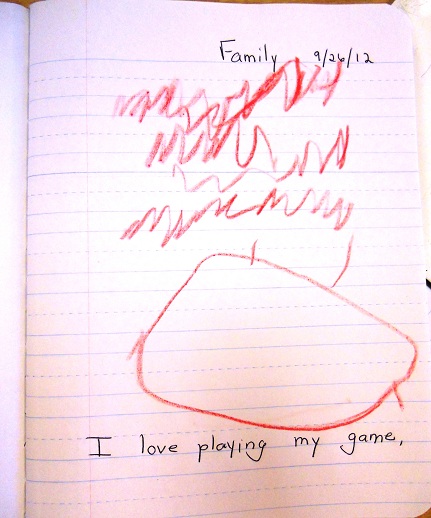 Family 9/26/12
I love playing my game,